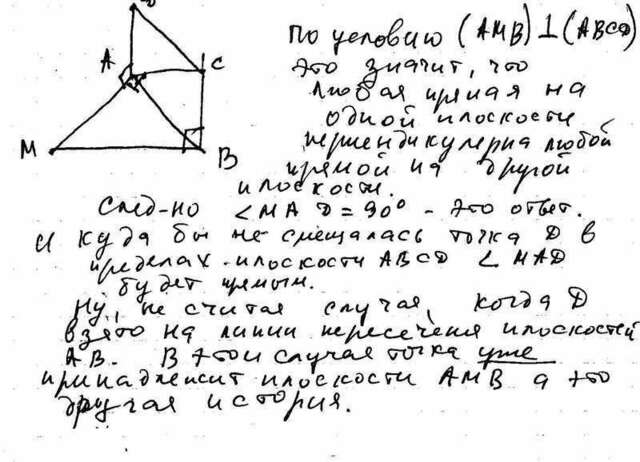 D
A
C
M
B
По условию (AMB)⊥(ABCD)
это значит, что
любая прямая на
одной плоскости
перпендикулярна любой
прямой на другой
плоскости.
След-но ∠MAD=90° - это ответ.
И куда бы не смещалась точка D в
пределах плоскости ABCD ∠MAD
будет прямым.
Ну, не считая случая, когда D
взято на линии пересечения плоскостей
AB. В этом случае точка уже
принадлежит плоскости AMB а это
другая история.